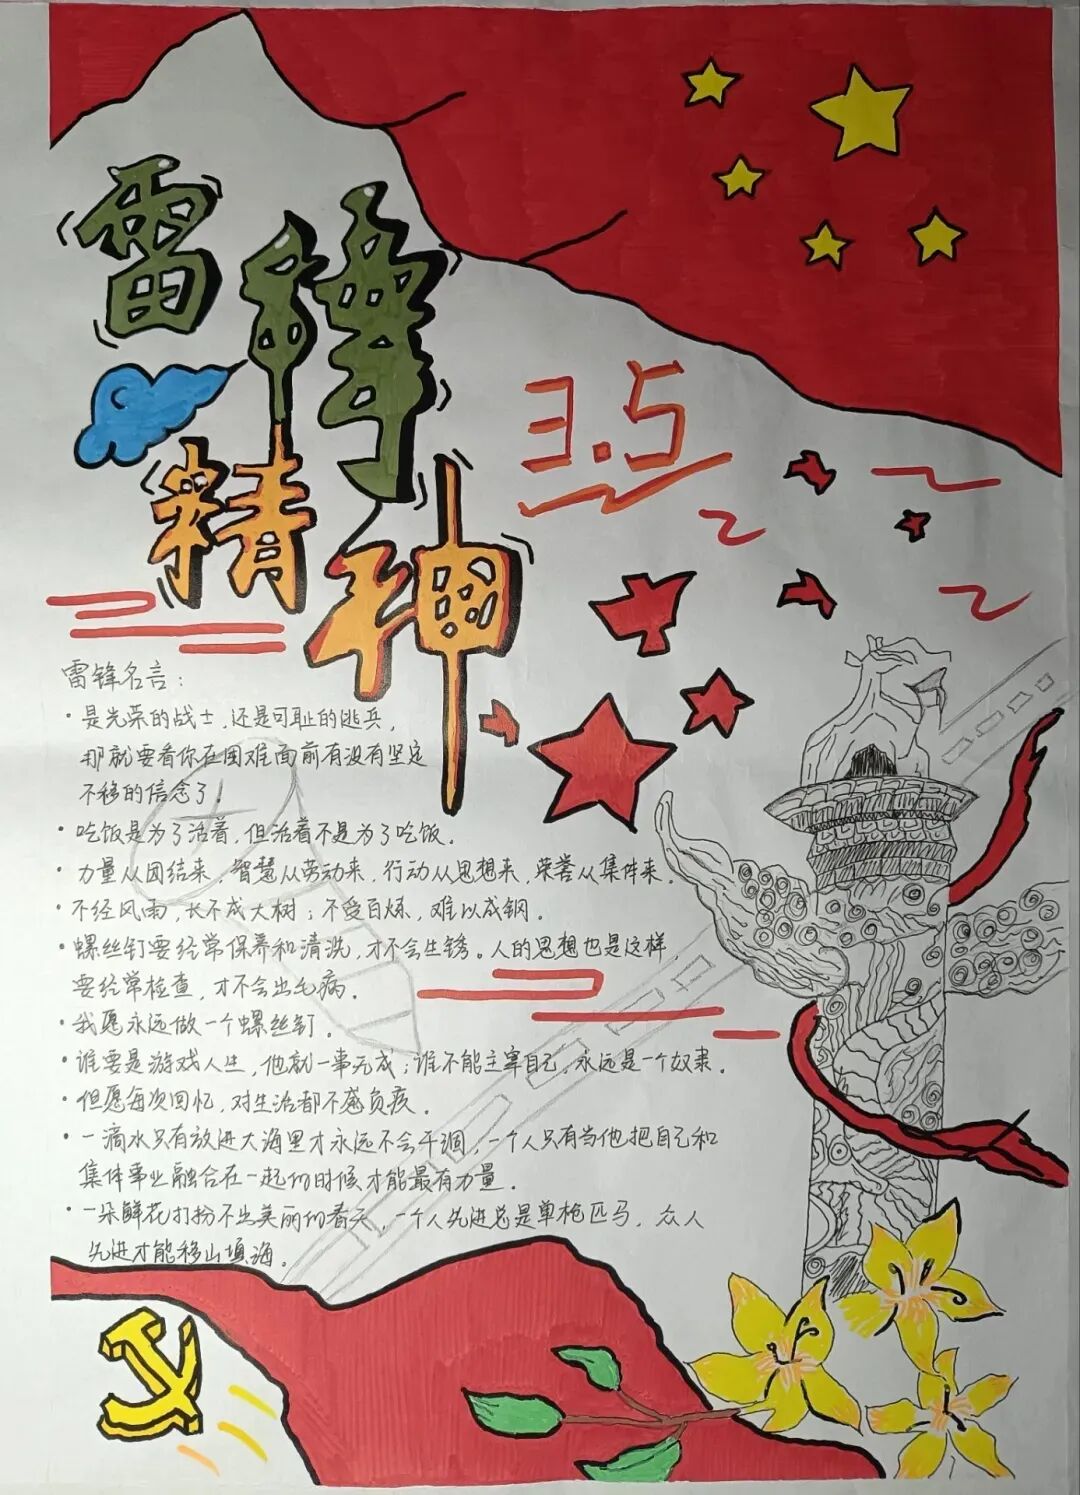 雷锋
精神
3.5
雷锋名言：
·是光荣的战士，还是可耻的逃兵，
那就要看你在困难面前有没有坚定
不移的信念了！
·吃饭是为了活着，但活着不是为了吃饭。
·力量从团结来，智慧从劳动来，行动从思想来，荣誉从集体来。
·不经风雨，长不成大树；不受百炼，难以成钢。
·螺丝钉要经常保养和清洗，才不会生锈。人的思想也是这样，
要经常检查，才不会出毛病。
·我愿永远做一个螺丝钉。
·谁要是游戏人生，他就一事无成；谁不能主宰自己，永远是一个奴隶。
·但愿每次回忆，对生活都不感负疚。
·一滴水只有放进大海里才永远不会干涸，一个人只有当他把自己和
集体事业融合在一起的时候才能最有力量。
·一朵鲜花打扮不出美丽的春天，一个人先进总是单枪匹马，众人
先进才能移山填海。